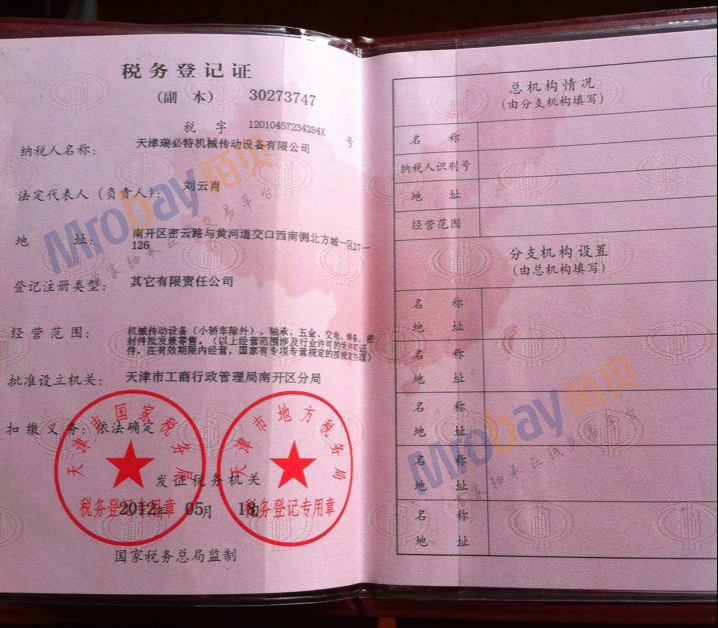 税务登记证
(副 本) 30273747
税 字 12010457234284X 号
纳税人名称: 天津瑞必特机械传动设备有限公司
法定代表人(负责人): 刘云肖
地 址: 南开区密云路与黄河道交口西南侧北方城一区27-
126
登记注册类型: 其它有限责任公司
经营范围: 机械传动设备(小轿车除外)、轴承、五金、交电、
封件批发兼零售。(以上经营范围涉及行业许可的凭许可证
件,在有效期限内经营,国家有专项专营规定的按规定办理)
批准设立机关: 天津市工商行政管理局南开区分局
扣缴义务: 依法确定
天津市国家税务局
税务登记专用章
天津市地方税务局
税务登记专用章
发证税务机关
2012年 05月 18日
国家税务总局监制
总机构情况
(由分支机构填写)
名 称
纳税人识别号
地 址
经营范围
分支机构设置
(由总机构填写)
名 称
地 址
名 称
地 址
名 称
地 址
名 称
地 址
名 称
地 址
Mrobay陌贝
Mrobay陌贝